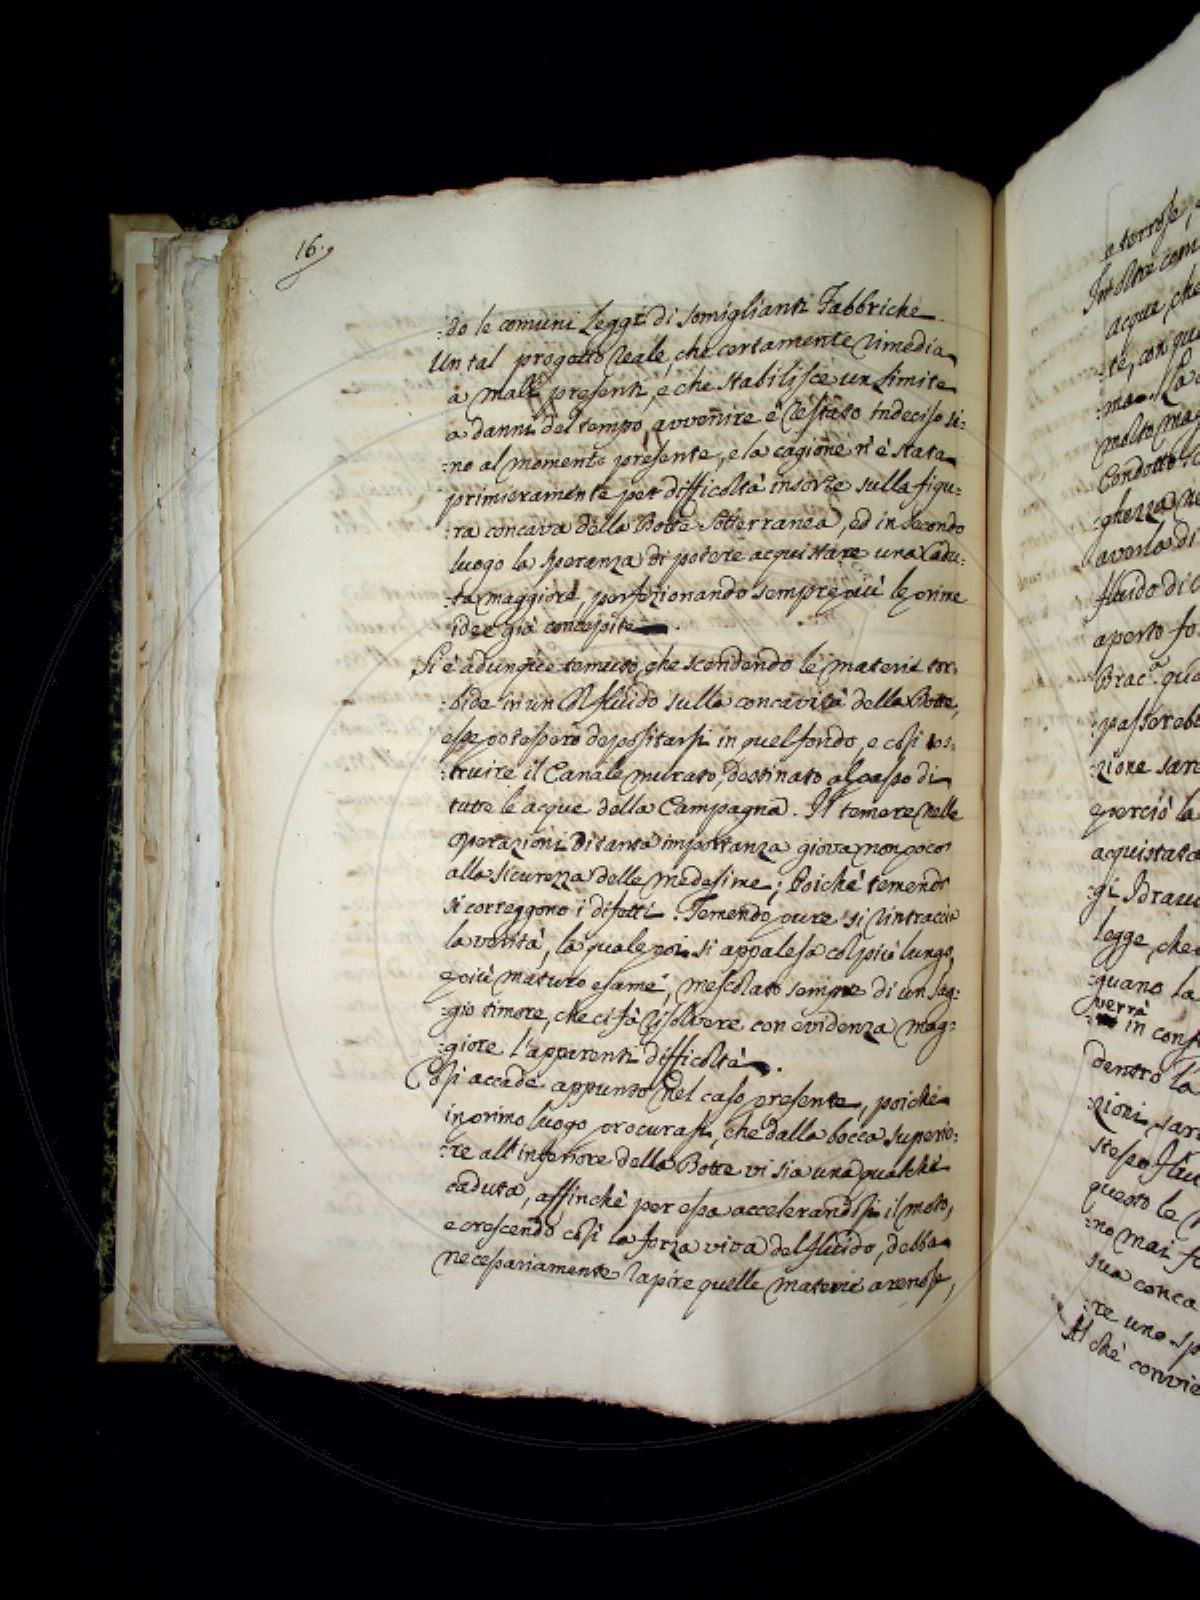 16.
:do le comuni Leggi di somiglianti Fabbriche.
Un tal progetto reale, che certamente rimedia
a mali presenti, e che stabilisce un limite
a danni del tempo avvenire è restato indeciso si:
:no al momento presente, e la cagione n'è stata
primieramente per difficoltà insorte sulla figu:
:ra concava della Botte sotterranea, ed in secondo
luogo la speranza di potere acquistare una cadu:
:ta maggiore, perfezionando sempre più le prime
idee già concepite.
Si è adunque temuto, che scendendo le materie tor:
:bide in un col fluido sulla concavità della Botte,
esse potessero depositarsi in quel fondo, e così os:
:truire il Canale murato, destinato al passo di
tutte le acque della Campagna. Il temere nelle
operazioni di tanta importanza giova non poco
alla sicurezza delle medesime; Poichè temendo
si correggono i difetti. Temendo pure si rintraccia
la verità, la quale poi si appalesa col più lungo,
e più maturo esame, mescolato sempre di un sag:
:gio timore, che ci fà risolvere con evidenza mag:
:giore l'apparenti difficoltà.
Così accade appunto nel caso presente, poichè
in primo luogo procurasi, che dalla bocca superio:
:re all'inferiore della Botte vi sia una qualche
caduta, affinchè per essa accelerandosi il moto,
e crescendo così la forza viva del fluido, debba
necessariamente rapire quelle materie arenose,
e terrose,
Inoltre com
acque, che
:te, con qu
:ma. La
molto mag
Condotto
:ghezza, ne
averla di
fluido di
aperto fo
Brac.ª qua
:passereb
:zione sar
e perciò la
acquistata
:gi Brau
legge, che
:guano la
verrà
in conf
dentro la
:zioni, sar
stesso flui
questo le
:no mai f
sua conca
:re uno sp
Al che convie